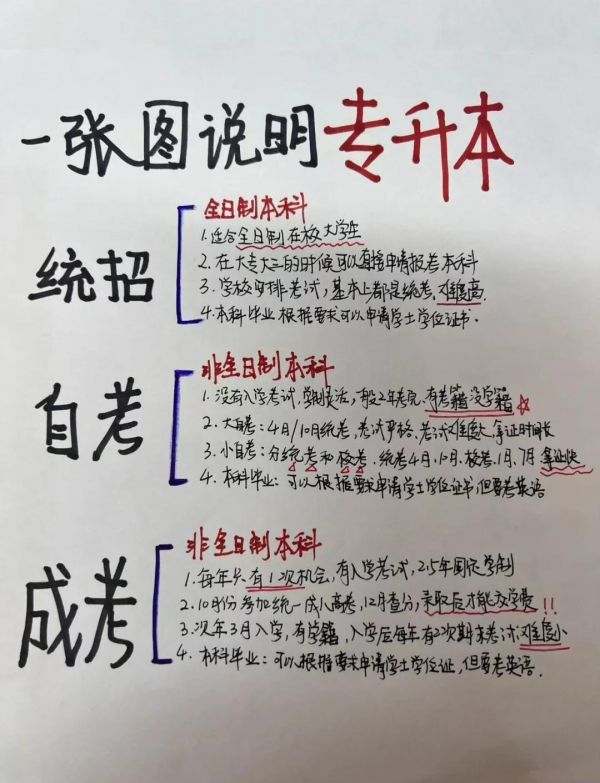 一张图说明专升本
统招
全日制本科
1.适合全日制在校大学生
2.在大专大三的时候可以直接申请报考本科
3.学校安排考试，基本上都是统考，难度高
4.本科毕业根据要求可以申请学士学位证书.
自考
非全日制本科
1.没有入学考试，学制灵活，有考籍没学籍
2.大自考:4月/10月统考，考试严格，考试难度大，拿证时间长
3.小自考:分统考和校考.统考4月、10月，校考1月、7月 拿证快
4.本科毕业:可以根据要求申请学士学位证书，但要考英语
成考
非全日制本科
1.每年只有1次机会，有入学考试，2.5年固定学制
2.10月份参加统一成人高考，12月查分，录取后才能交学费!!
3.次年3月入学，有学籍，入学后每年有2次期末考试难度小
4.本科毕业:可以根据要求申请学士学位证，但要考英语.